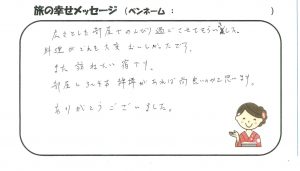 旅の幸せメッセージ (ペンネーム： )
広々とした部屋でのんびり過ごさせてもらいました。
料理がとれも大変おいしかったです。
また訪ねたい宿です。
部屋に
があれば尚良いのかと思います。
ありがとうございました。